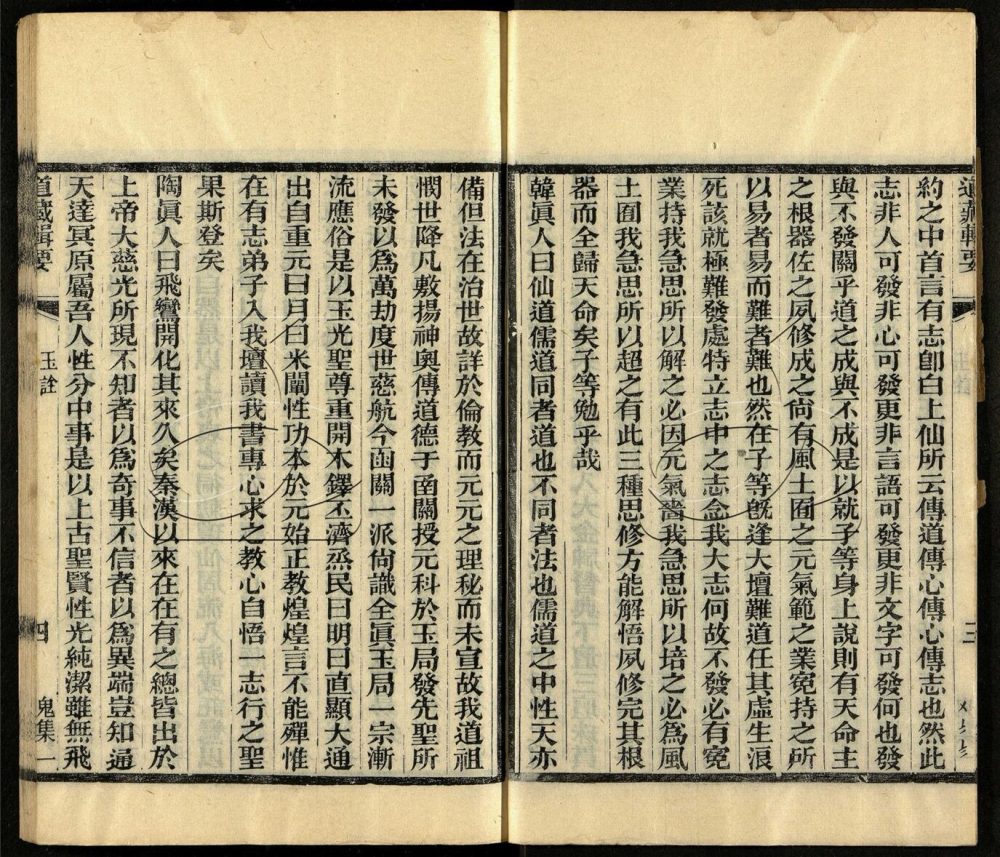 道藏輯要
三
約之中首言有志卽白上仙所云傳道傳心傳心傳志也然此
志非人可發非心可發更非言語可發更非文字可發何也發
與不發關乎道之成與不成是以就子等身上說則有天命主
之根器佐之夙修成之尙有風土囿之元氣範之業寃持之所
以易者易而難者難也然在子等旣逢大壇難道任其虛生浪
死該就極難發處特立志中之志念我大志何故不發必有寃
業持我急思所以解之必因元氣嗇我急思所以培之必爲風
土囿我急思所以超之有此三種思修方能解悟夙修完其根
器而全歸天命矣子等勉乎哉
韓眞人曰仙道儒道同者道也不同者法也儒道之中性天亦
備但法在治世故詳於倫教而元元之理秘而未宣故我道祖
憫世降凡敷揚神奧傳道德于函關授元科於玉局發先聖所
未發以爲萬劫度世慈航今函關一派尙識全眞玉局一宗漸
流應俗是以玉光聖尊重開木鐸丕濟烝民曰明曰直顯大通
出自重元曰月曰米闡性功本於元始正教煌煌言不能殫惟
在有志弟子入我壇讀我書專心求之教心自悟一志行之聖
果斯登矣
陶眞人曰飛鸞開化其來久矣秦漢以來在在有之總皆出於
上帝大慈光所現不知者以爲奇事不信者以爲異端豈知通
天達冥原屬吾人性分中事是以上古聖賢性光純潔雖無飛
道藏輯要
玉詮
四
鬼集一